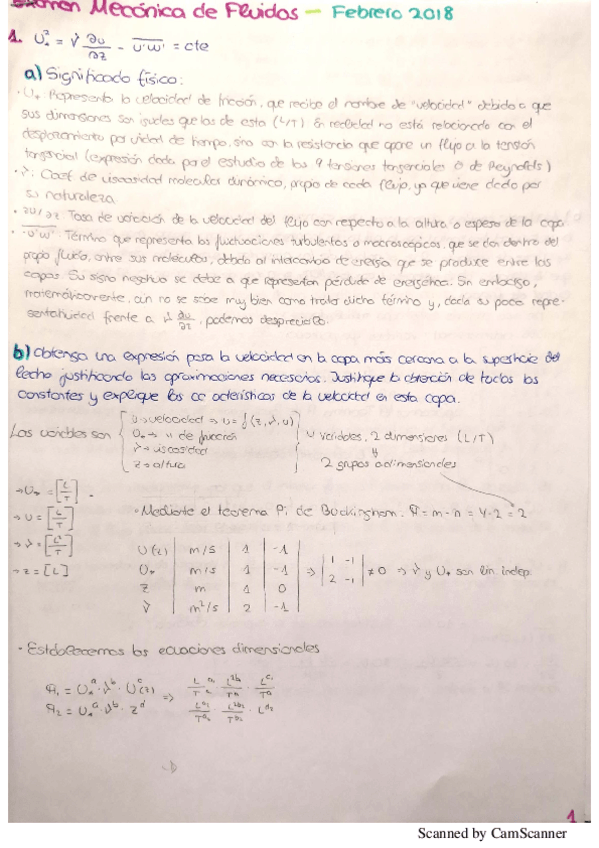 Examen Mecánica de Fluidos - Febrero 2018
1. U*² = ν ∂u/∂z - u'w' = cte
a) Significado físico:
· U* Representa la velocidad de fricción, que recibe el nombre de "velocidad" debido a que
sus dimensiones son iguales que las de esta (L/T) En realidad no está relacionado con el
desplazamiento por unidad de tiempo, sino con la resistencia que opone un flujo a la tensión
tangencial (expresión dada por el estudio de las 9 tensiones tangenciales o de Reynolds)
· ν: Coef de viscosidad molecular dinámico, propio de cada flujo, ya que viene dado por
su naturaleza
· ∂u/∂z Tasa de variación de la velocidad del flujo con respecto a la altura o espesor de la capa
· -u'w': Término que representa las fluctuaciones turbulentas o macroscópicas, que se dan dentro del
propio fluido, entre sus moléculas, debido al intercambio de energía que se produce entre las
capas. Su signo negativo se debe a que representan pérdida de energética. Sin embargo,
matemáticamente, aún no se sabe muy bien como tratar dicho término y, dada su poca repre-
sentatividad frente a ν ∂u/∂z, podemos despreciarlo.
b) Obtenga una expresión para la velocidad en la capa más cercana a la superficie del
lecho justificando las aproximaciones necesarias. Justifique la obtención de todas las
constantes y explique las características de la velocidad en esta capa.
Las variables son
U → velocidad → U = f(z, ν, u)
U* → " de fricción
ν → viscosidad
z → altura
4 variables, 2 dimensiones (L/T)
2 grupos adimensionales
→ U* = [L/T]
→ U = [L/T]
→ ν = [L²/T]
→ z = [L]
· Mediante el teorema Pi de Buckingham. π = m - n = 4 - 2 = 2
U(z) | m/s | 1 | -1
U* | m/s | 1 | -1
z | m | 1 | 0
ν | m²/s | 2 | -1
⇒ |1 -1; 2 -1| ≠ 0 ⇒ ν y U* son lin. indep.
· Establecemos las ecuaciones dimensionales
π1 = U*^a · ν^b · U(z)^c ⇒
π2 = U*^a · ν^b · z^d
1
Scanned by CamScanner